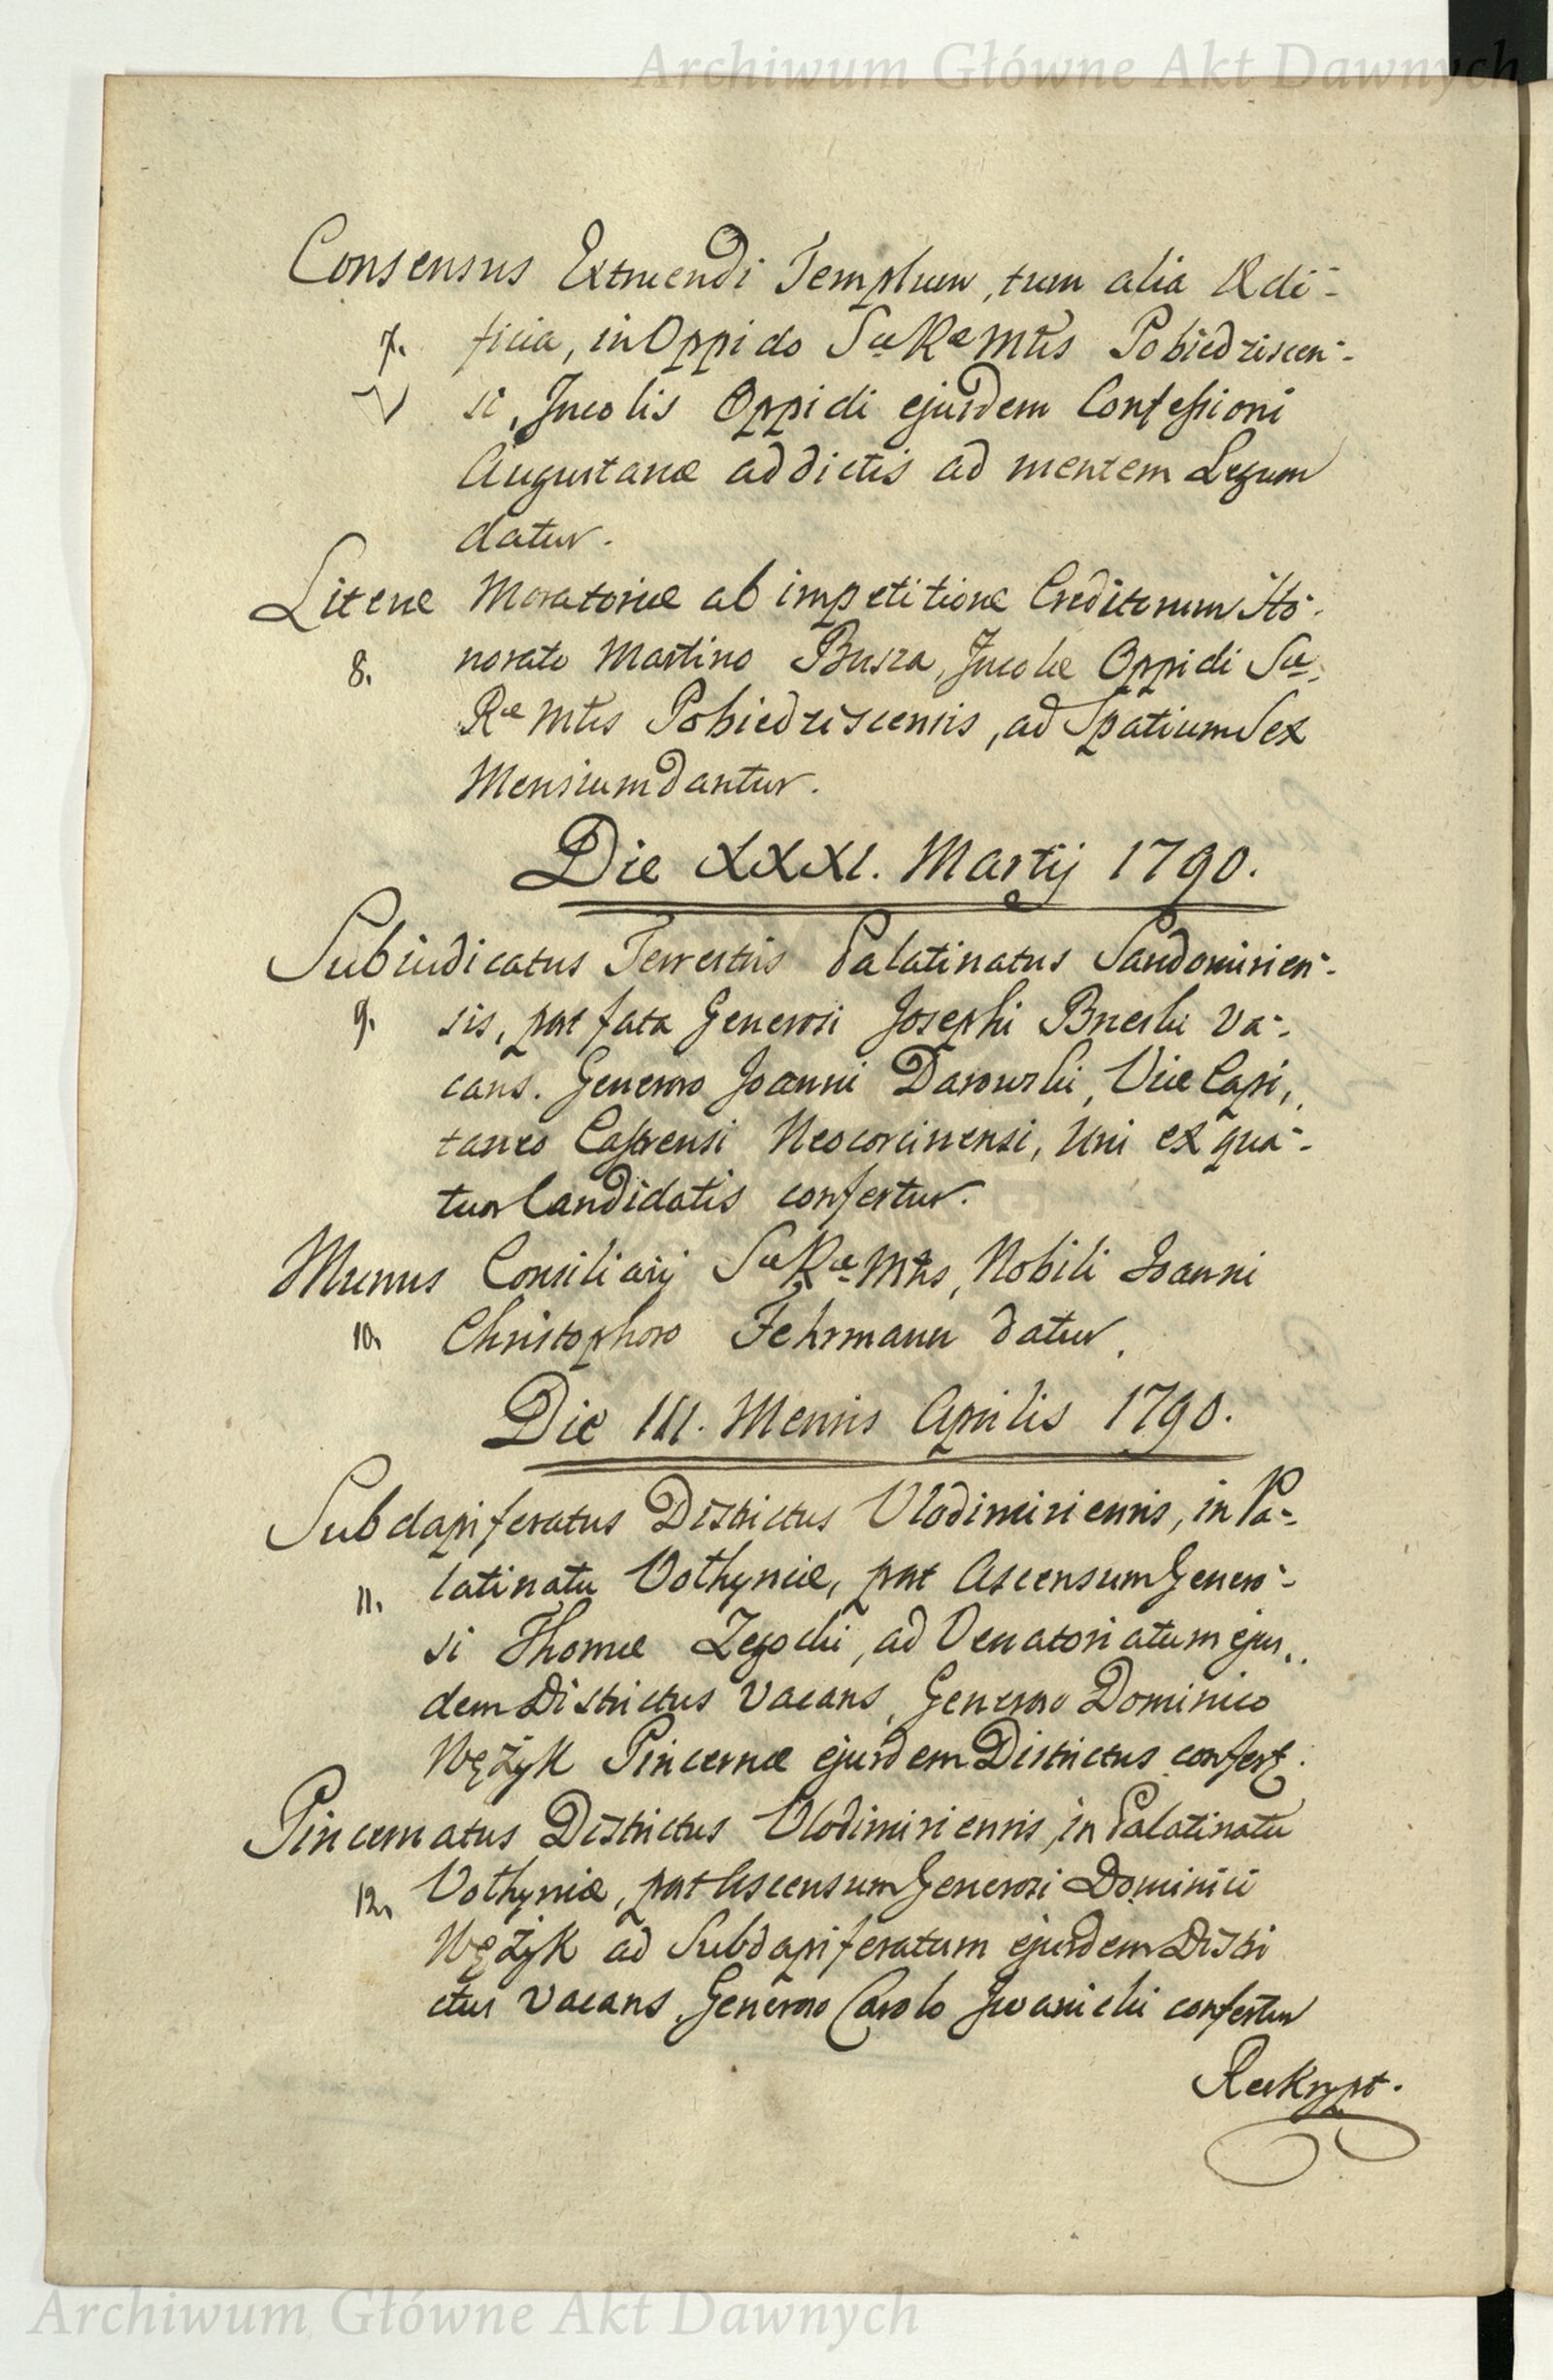 Archiwum Główne Akt Dawnych
Consensus Extruendi Templum, tum alia Ædi-
7. ficia, in Oppido Sæ Ræ Mtis Pobiedziscen-
si, Incolis Oppidi ejusdem Confessioni
Augustanæ addictis ad mentem Legum
datur.
Literæ Moratoriæ ab impetitione Creditorum Ho-
8. norato Martino Busza, Incolæ Oppidi Sæ
Ræ Mtis Pobiedziscensis, ad Spatium Sex
Mensium dantur.
Die XXXI. Martij 1790.
Subiudicatus Terrestris Palatinatus Sandomirien-
9. sis, post fata Generosi Josephi Brzeski va-
cans. Generoso Joanni Darowski, Vice Capi,,
taneo Castrensi Neocorcinensi, Uni ex qua-
tuor Candidatis confertur.
Munus Consiliarij Sæ Ræ Mtis, Nobili Joanni
10. Christophoro Fehrmann datur.
Die III. Mensis Aprilis 1790.
Subdapiferatus Districtus Vlodimiriensis, in Pa-
11. latinatu Volhyniæ, post Ascensum Genero-
si Thomæ Zagorski, ad Venatoriatum ejus,,
dem Districtus vacans, Generoso Dominico
Wężyk Pincernæ ejusdem Districtus confert.
Pincernatus Districtus Vlodimiriensis, in Palatinatu
12. Volhyniæ, post Ascensum Generosi Dominici
Wężyk ad Subdapiferatum ejusdem Distri
ctus vacans, Generoso Carolo Iwanicki confertur
Reskrypt.
Archiwum Główne Akt Dawnych